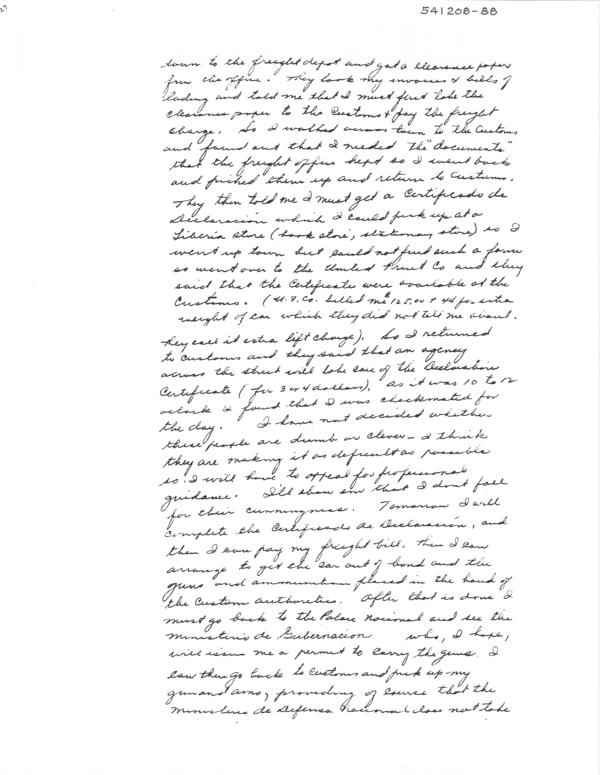 541208-88
down to the freight depot and got a clearance paper
from the office. They took my invoices & bills of
lading and told me that I must first take the
clearance paper to the Customs & pay the freight
charge. So I walked across town to the Customs
and found out that I needed the "documents"
that the freight office kept so I went back
and picked them up and return to Customs.
They then told me I must get a Certificado de
Declaración which I could pick up at a
Liberia store (book store, stationary store) so I
went up town but could not find such a form
so went over to the United Fruit Co and they
said that the Certificate were available at the
Customs. (U.F.Co. billed me $125.00 + 44 for extra
weight of car which they did not tell me about.
They call it extra lift charge). So I returned
to Customs and they said that an agency
across the street will take care of the Declaration
Certificate (for 3 or 4 dollars), as it was 10 to 12
oclock I found that I was checkmated for
the day. I have not decided whether
these people are dumb or clever - I think
they are making it as difficult as possible
so I will have to appeal for professional
guidance. I'll show em that I dont fall
for their cunningness. Tomorrow I will
complete the Certificado de Declaración, and
then I can pay my freight bill. Then I can
arrange to get the car out of bond and the
guns and ammunition placed in the hand of
the Custom authorities. After that is done I
must go back to the Palace Nacional and see the
Ministerio de Gubernacion who, I hope,
will issue me a permit to carry the guns. I
can then go back to Customs and pick up my
gun and amo, providing of course that the
Ministerio de Defensa Nacional does not take